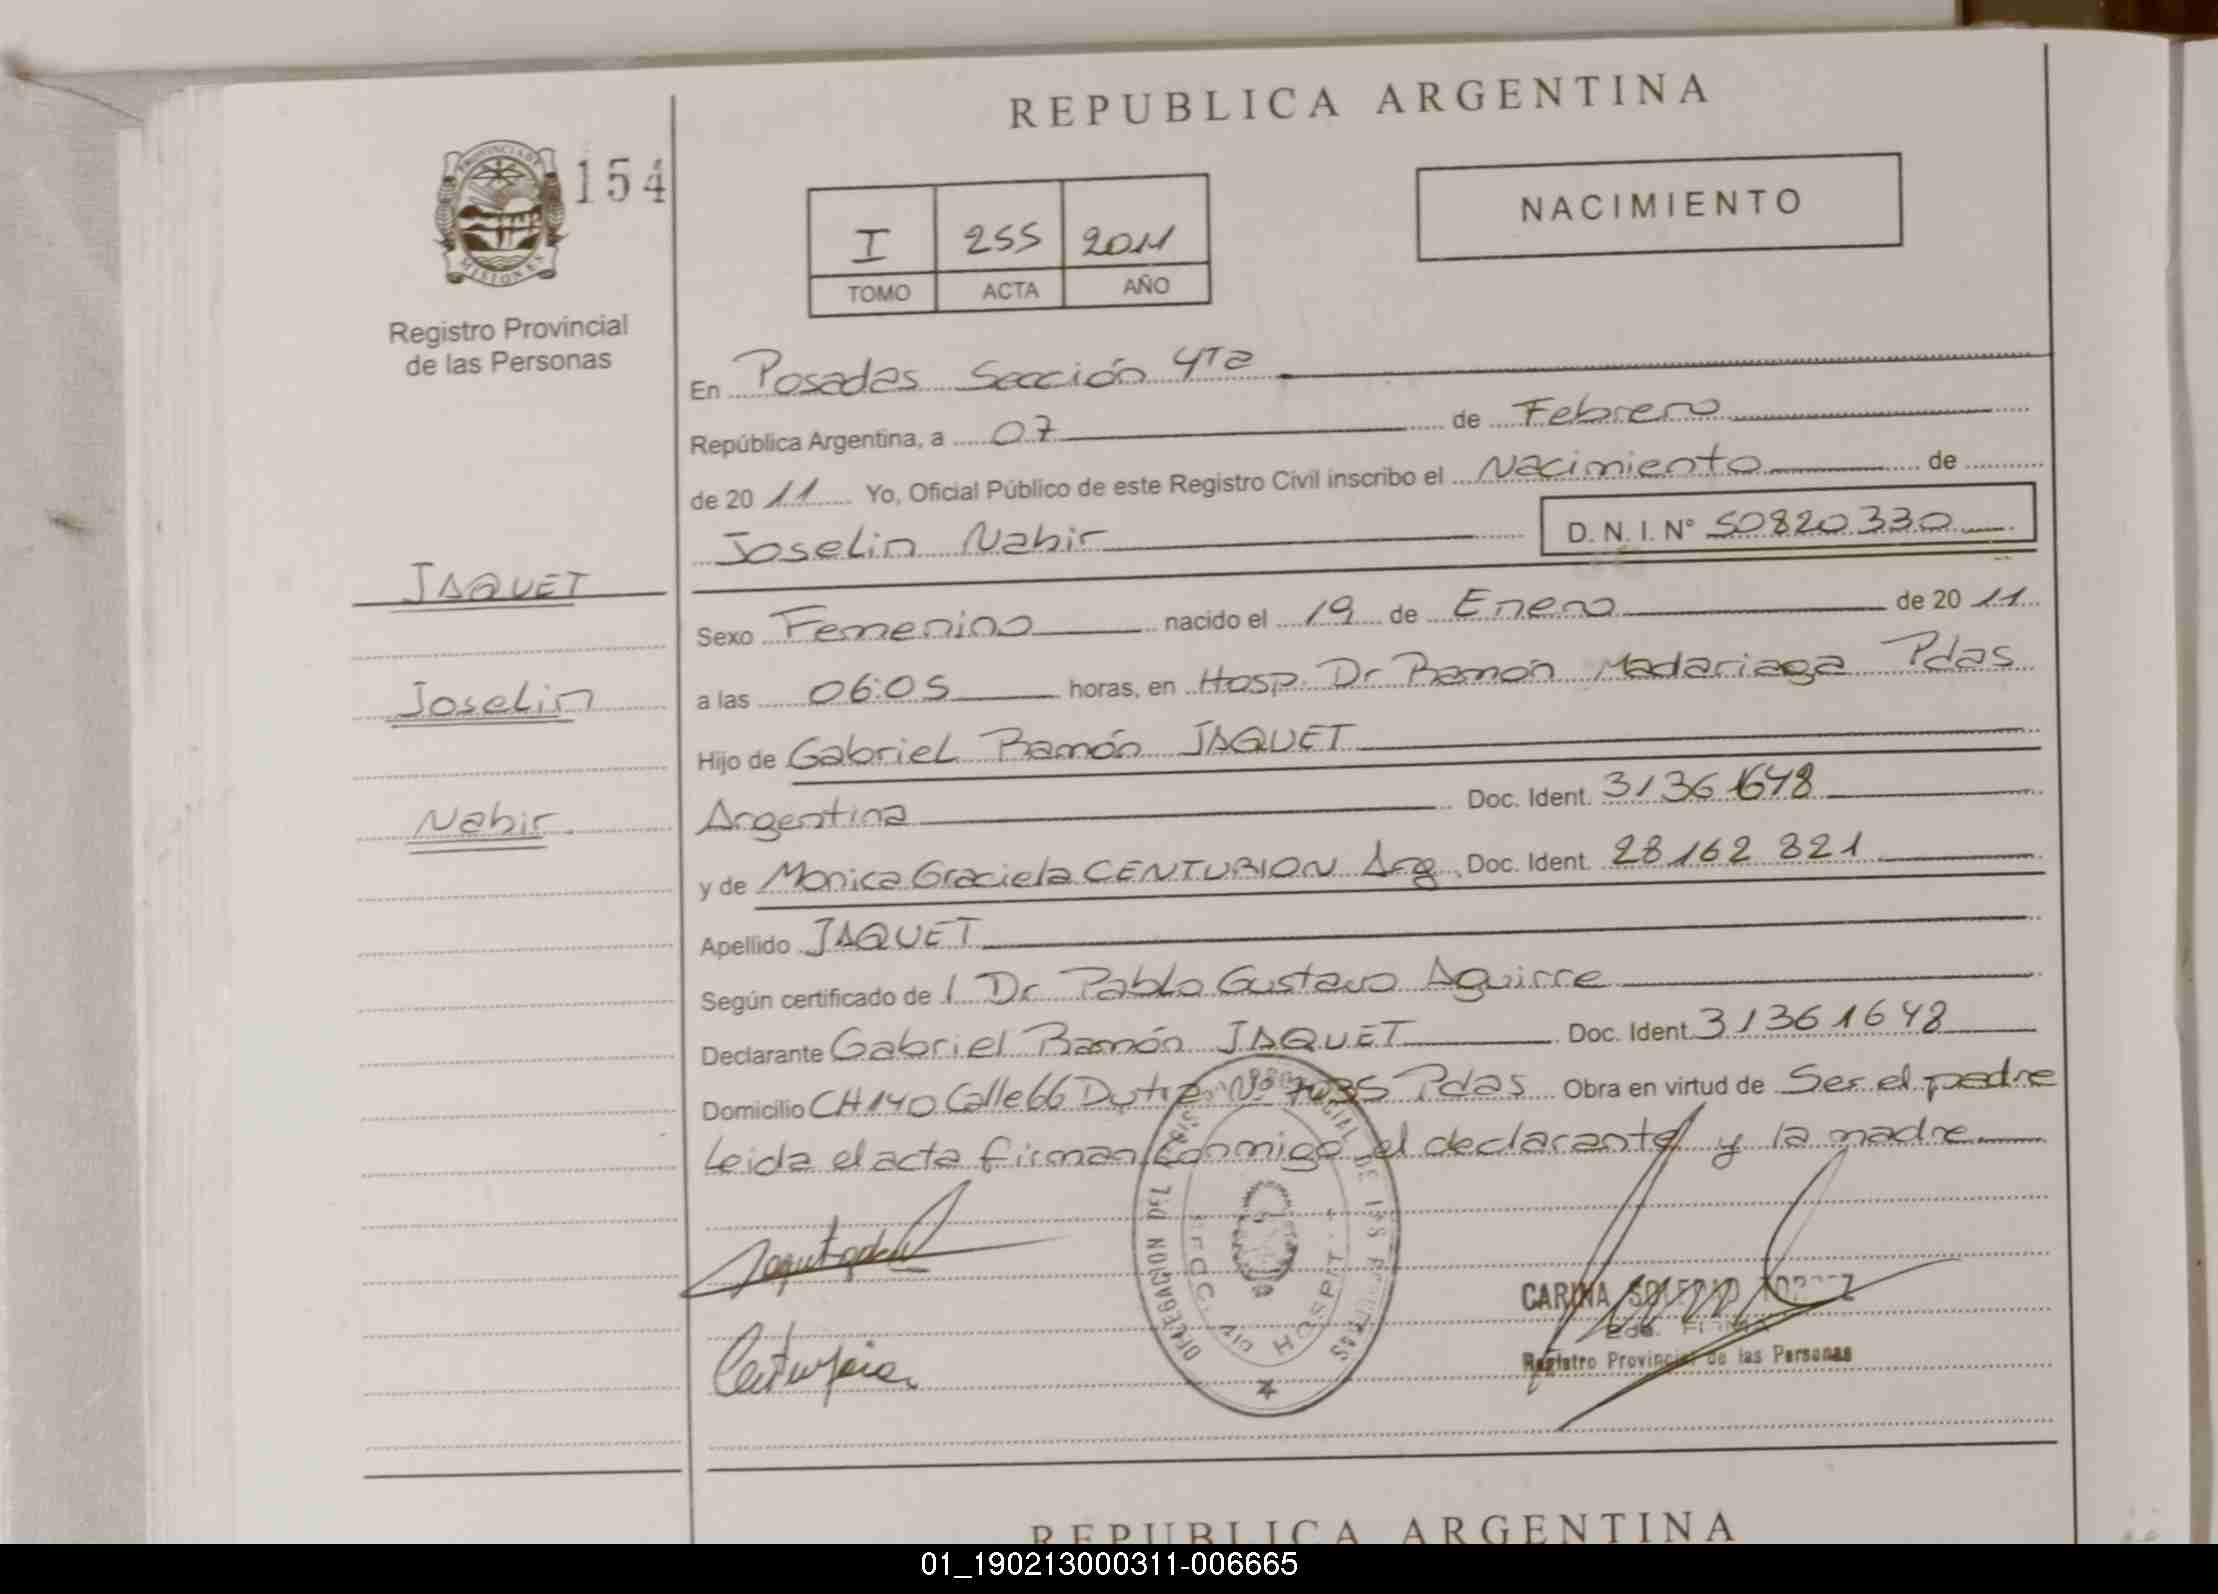 REPUBLICA ARGENTINA
PROVINCIA DE
MISIONES
154
Registro Provincial
de las Personas
I 255 2011
TOMO ACTA AÑO
NACIMIENTO
En Posadas Sección 4ta
República Argentina, a 07 de Febrero
de 20 11 Yo, Oficial Público de este Registro Civil inscribo el Nacimiento de
Joselin Nahir D. N. I. N° 50820330
JAQUET
Joselin
Nahir
Sexo Femenino nacido el 19 de Enero de 20 11
a las 06:05 horas, en Hosp. Dr Ramón Madariaga Pdas
Hijo de Gabriel Ramón JAQUET
Argentina Doc. Ident. 31361648
y de Monica Graciela CENTURION Arg. Doc. Ident. 28162821
Apellido JAQUET
Según certificado de l Dr Pablo Gustavo Aguirre
Declarante Gabriel Ramón JAQUET Doc. Ident. 31361648
Domicilio CH 140 Calle 66 D Nº 7035 Pdas Obra en virtud de Ser el padre
Leida el acta firman conmigo el declarante y la madre
DELEGACION DEL REGISTRO PROVINCIAL DE las PERSONAS
HOSPIT
CARINA SOLEDAD
Registro Provincial de las Personas
REPUBLICA ARGENTINA
01_190213000311-006665